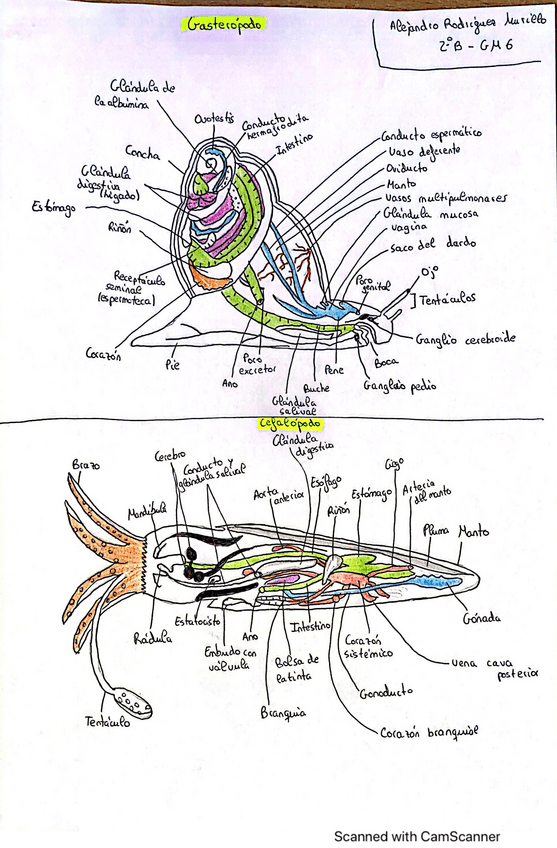 Gasterópodo
Alejandro Rodríguez Murillo
2ºB - GM6
Glándula de
la albúmina
Ovotestis
Conducto
hermafrodita
Intestino
Concha
Glándula
digestiva
(hígado)
Estómago
Riñón
Receptáculo
seminal
(espermateca)
Corazón
Pie
Ano
Poro
excretor
Glándula
salival
Buche
Pene
Ganglio pedio
Boca
Ganglio cerebroide
Tentáculos
Ojo
Poro
genital
Conducto espermático
Vaso deferente
Oviducto
Manto
Vasos multipulmonares
Glándula mucosa
vagina
saco del dardo
Cefalópodo
Glándula
digestiva
Brazo
Cerebro
Conducto y
glándula salival
Mandíbula
Aorta
anterior
Esófago
Riñón
Estómago
Ciego
Arteria
del manto
Pluma
Manto
Gónada
vena cava
posterior
Rádula
Estatocisto
Embudo con
válvula
Ano
Bolsa de
la tinta
Intestino
Corazón
sistémico
Gonoducto
Branquia
Corazón branquial
Tentáculo
Scanned with CamScanner